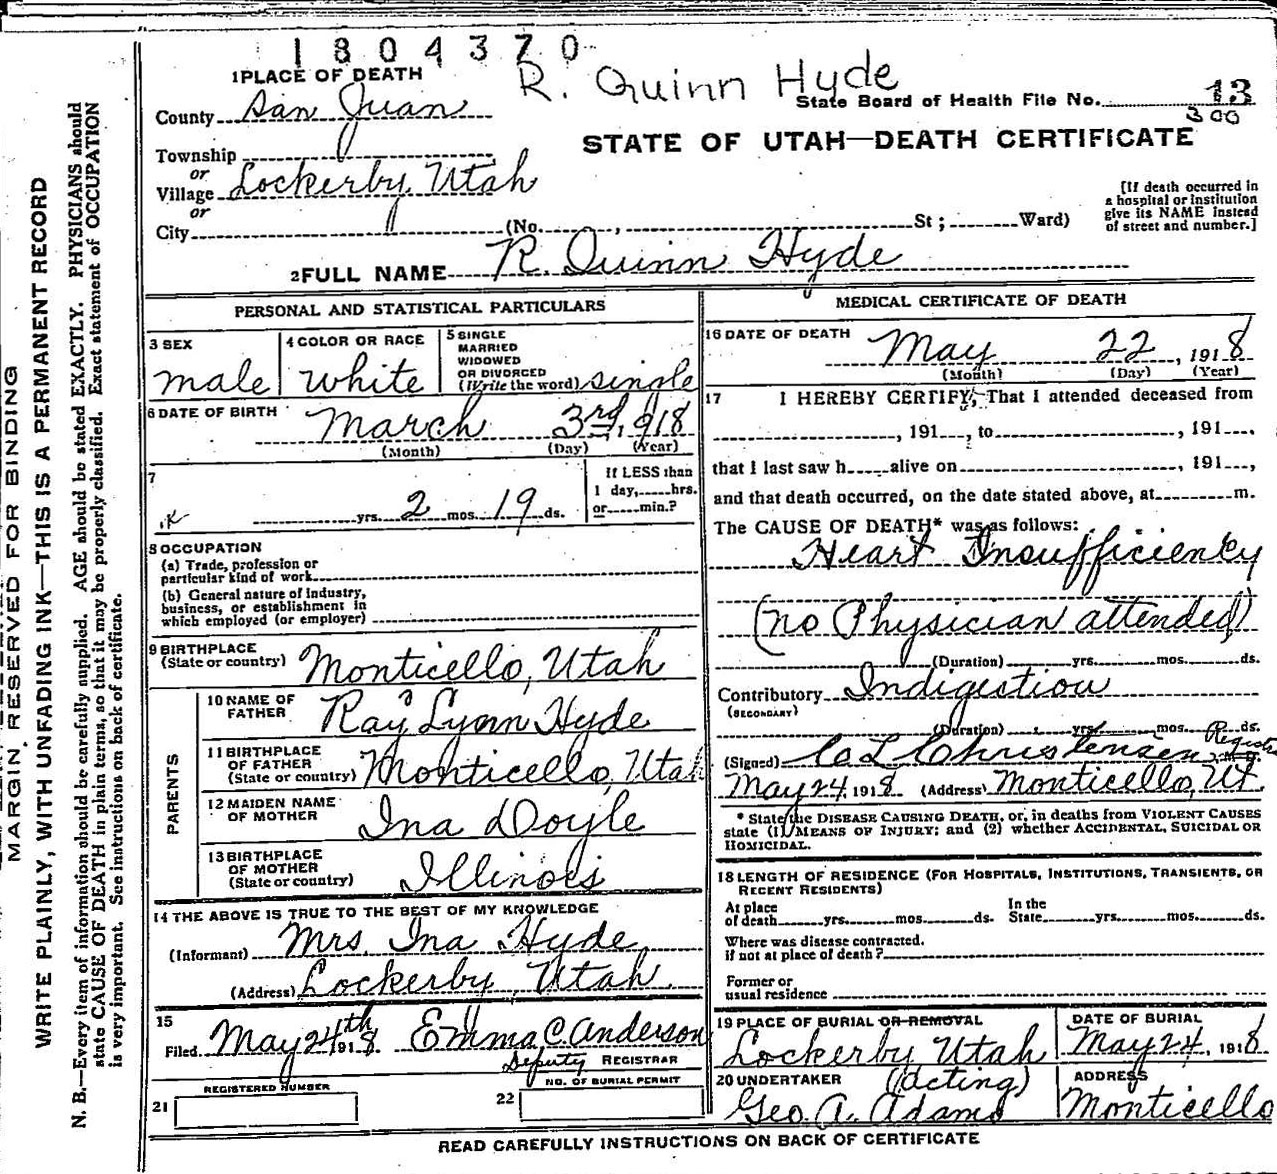 1804370
R. Quinn Hyde
1 PLACE OF DEATH
County San Juan
State Board of Health File No. 13
300
STATE OF UTAH—DEATH CERTIFICATE
Township
or
Village Lockerby, Utah
or
City (No. , St ; Ward)
[If death occurred in
a hospital or institution
give its NAME instead
of street and number.]
2 FULL NAME R Quinn Hyde
PERSONAL AND STATISTICAL PARTICULARS
3 SEX
male
4 COLOR OR RACE
white
5 SINGLE
MARRIED
WIDOWED
OR DIVORCED
(Write the word) single
6 DATE OF BIRTH
March 3rd, 1918
(Month) (Day) (Year)
7
yrs. 2 mos. 19 ds.
If LESS than
1 day, hrs.
or min.?
8 OCCUPATION
(a) Trade, profession or
particular kind of work
(b) General nature of industry,
business, or establishment in
which employed (or employer)
9 BIRTHPLACE
(State or country) Monticello, Utah
PARENTS
10 NAME OF
FATHER Ray Lynn Hyde
11 BIRTHPLACE
OF FATHER
(State or country) Monticello, Utah
12 MAIDEN NAME
OF MOTHER Ina Doyle
13 BIRTHPLACE
OF MOTHER
(State or country) Illinois
14 THE ABOVE IS TRUE TO THE BEST OF MY KNOWLEDGE
(Informant) Mrs. Ina Hyde
(Address) Lockerby, Utah
15
Filed May 24th 1918 Emma C Anderson
Deputy REGISTRAR
REGISTERED NUMBER
21
NO. OF BURIAL PERMIT
22
MEDICAL CERTIFICATE OF DEATH
16 DATE OF DEATH
May 22, 1918
(Month) (Day) (Year)
17 I HEREBY CERTIFY, That I attended deceased from
, 191 , to , 191
that I last saw h alive on , 191 ,
and that death occurred, on the date stated above, at m.
The CAUSE OF DEATH* was as follows:
Heart Insufficiency
(no Physician attended)
(Duration) yrs. mos. ds.
Contributory Indigestion
(SECONDARY)
(Duration) yrs. mos. ds.
(Signed) C L Christensen
May 24, 1918 (Address) Monticello, Ut.
* State the DISEASE CAUSING DEATH, or, in deaths from VIOLENT CAUSES
state (1) MEANS OF INJURY; and (2) whether ACCIDENTAL, SUICIDAL OR
HOMICIDAL.
18 LENGTH OF RESIDENCE (FOR HOSPITALS, INSTITUTIONS, TRANSIENTS, OR
RECENT RESIDENTS)
At place
of death yrs. mos. ds.
In the
State yrs. mos. ds.
Where was disease contracted.
if not at place of death?
Former or
usual residence
19 PLACE OF BURIAL OR REMOVAL
Lockerby Utah
DATE OF BURIAL
May 24, 1918
20 UNDERTAKER (acting)
Geo. A. Adams
ADDRESS
Monticello
READ CAREFULLY INSTRUCTIONS ON BACK OF CERTIFICATE
MARGIN RESERVED FOR BINDING
WRITE PLAINLY, WITH UNFADING INK—THIS IS A PERMANENT RECORD
N. B.—Every item of information should be carefully supplied. AGE should be stated EXACTLY. PHYSICIANS should
state CAUSE OF DEATH in plain terms, so that it may be properly classified. Exact statement of OCCUPATION
is very important. See instructions on back of certificate.